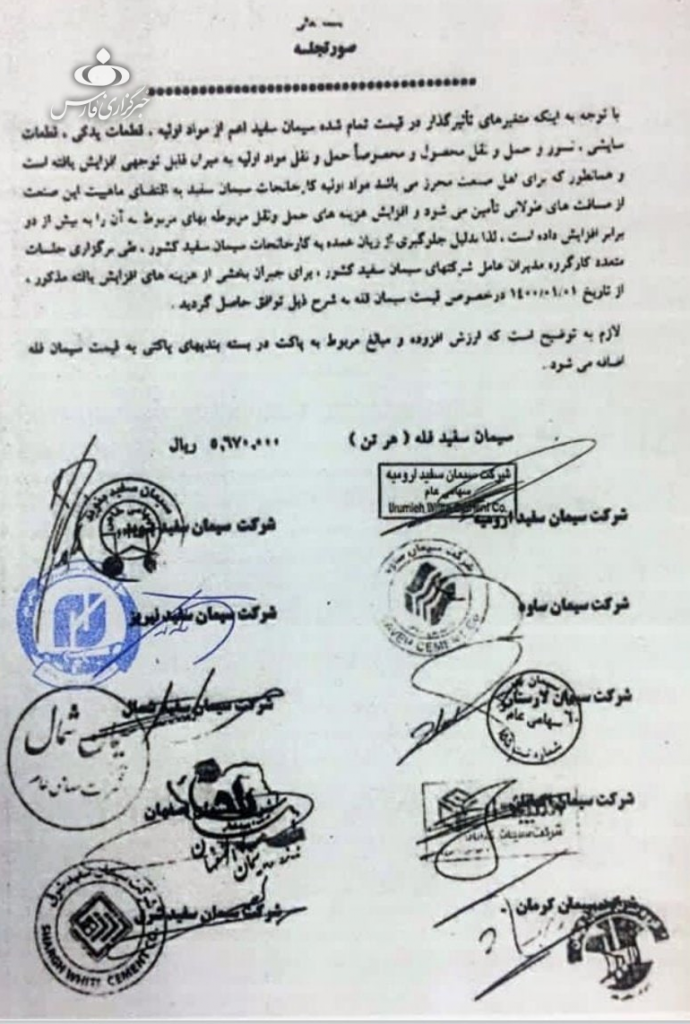 بسمه تعالی
صورتجلسه
خبرگزاری فارس
با توجه به اینکه متغیرهای تأثیرگذار در قیمت تمام شده سیمان سفید اعم از مواد اولیه ، قطعات یدکی ، قطعات
سایشی ، نسوز و حمل و نقل محصول و مخصوصاً حمل و نقل مواد اولیه به میزان قابل توجهی افزایش یافته است
و همانطور که برای اهل صنعت محرز می باشد مواد اولیه کارخانجات سیمان سفید به اقتضای ماهیت این صنعت
از مسافت های طولانی تأمین می شود و افزایش هزینه های حمل ونقل مربوطه بهای مربوط به آن را به بیش از دو
برابر افزایش داده است ، لذا بدلیل جلوگیری از زیان عمده به کارخانجات سیمان سفید کشور ، طی برگزاری جلسات
متعدد کارگروه مدیران عامل شرکتهای سیمان سفید کشور ، برای جبران بخشی از هزینه های افزایش یافته مذکور ،
از تاریخ ۱۴۰۰/۰۱/۰۱ درخصوص قیمت سیمان فله به شرح ذیل توافق حاصل گردید .
لازم به توضیح است که ارزش افزوده و مبالغ مربوط به پاکت در بسته بندیهای پاکتی به قیمت سیمان فله
اضافه می شود .
سیمان سفید فله ( هر تن ) ۵,۶۷۰,۰۰۰ ریال
شرکت سیمان سفید ارومیه
سهامی عام
Urumieh White Cement Co.
شرکت سیمان سفید ارومیه
شرکت سیمان سفید
شرکت سیمان ساوه
SAVEH CEMENT CO.
شرکت سیمان ساوه
شرکت سیمان سفید نیریز
شرکت سیمان لارستان
سهامی عام
شماره ثبت
شرکت سیمان سفید شمال
شمال
شرکت سیمان
اصفهان
شرکت سیمان کرمان
شرکت سیمان سفید شرق
شرکت سیمان سفید شرق
SHARGH WHITE CEMENT CO.